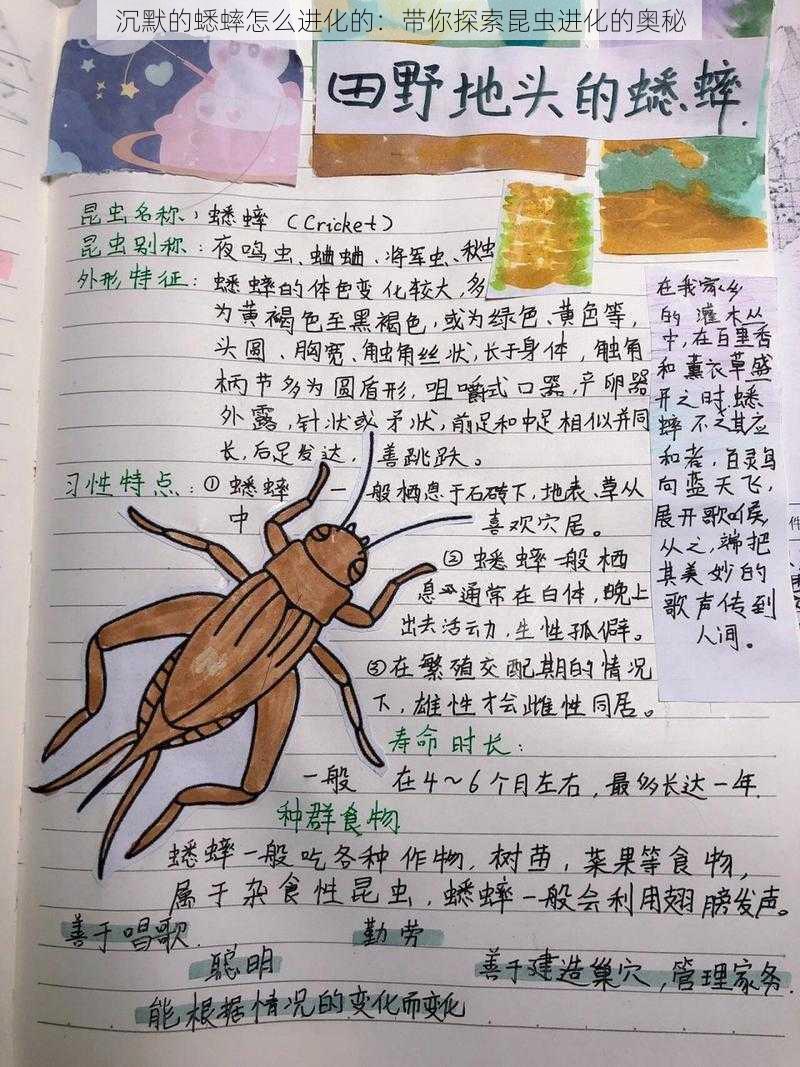 沉默的蟋蟀怎么进化的：带你探索昆虫进化的奥秘
田野地头的蟋蟀.
昆虫名称：蟋蟀（Cricket）
昆虫别称：夜鸣虫、蛐蛐、将军虫、秋虫
外形特征：蟋蟀的体色变化较大，多
为黄褐色至黑褐色，或为绿色、黄色等，
头圆、胸宽、触角丝状，长于身体，触角
柄节多为圆盾形，咀嚼式口器，产卵器
外露，针状或矛状，前足和中足相似并同
长，后足发达，善跳跃。
习性特点：①蟋蟀一般栖息于石砖下，地表、草丛
中喜欢穴居。
②蟋蟀一般栖
息通常在白体，晚上
出去活动，生性孤僻。
③在繁殖交配期的情况
下，雄性才会雌性同居。
寿命时长：
一般在4～6个月左右，最多长达一年.
种群食物
蟋蟀一般吃各种作物，树苗，菜果等食物，
属于杂食性昆虫，蟋蟀一般会利用翅膀发声。
善于唱歌.
勤劳
聪明
善于建造巢穴，管理家务.
能根据情况的变化而变化
在我家乡
的灌木丛
中，在百里香
和薰衣草盛
开之时，蟋
蟀不乏其应
和者，百灵鸟
向蓝天飞，
展开歌喉，
从之，端把
其美妙的
歌声传到
人间。
件